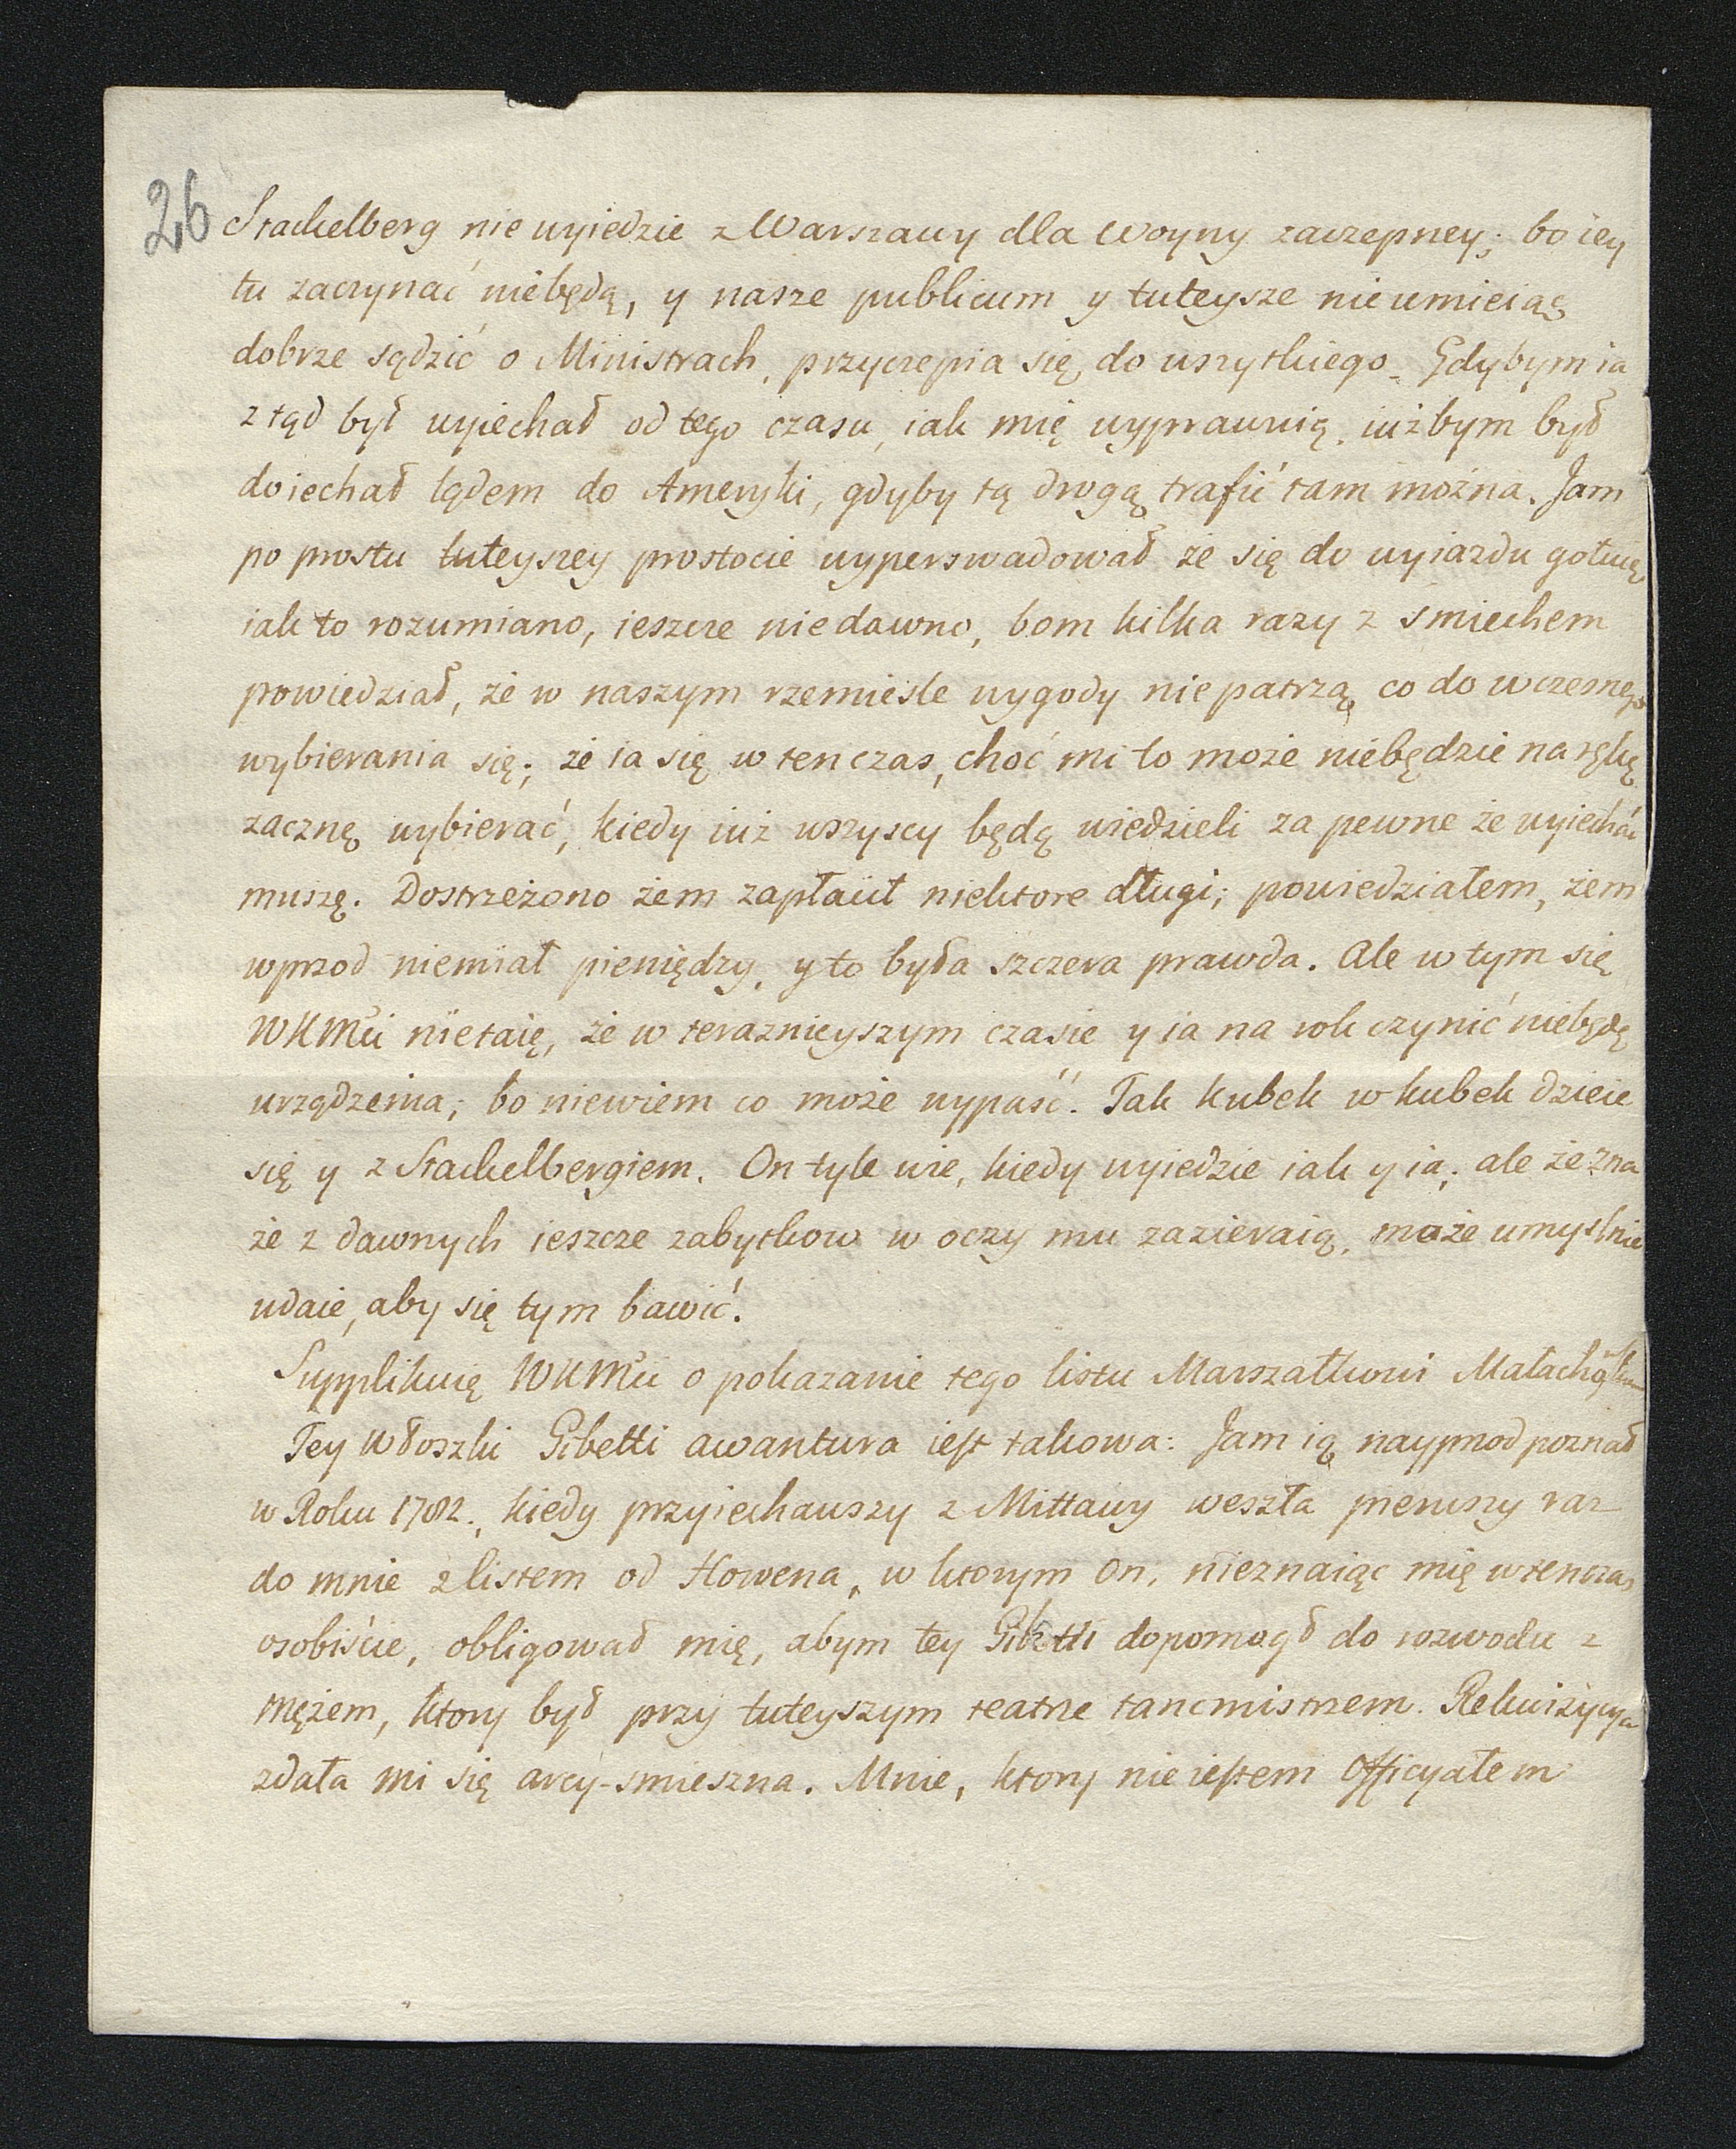 26
Stackelberg nie wyiedzie z Warszawy dla Woyny zaczepney; bo iey
tu zaczynać niebędą, y nasze publicum y tuteysze nie umieiąc
dobrze sądzić o Ministrach, przyczepia się do wszytkiego. Gdybym ia
z tąd był wyiechał od tego czasu, iak mię wyprawuią, iużbym był
doiechał lądem do Ameryki, gdyby tą drogą trafić tam można. Jam
po prostu tuteyszey prostocie wyperswadował że się do wyiazdu gotuię,
iak to rozumiano, ieszcze niedawno, bom kilka razy z smiechem
powiedział, że w naszym rzemieśle wygody nie patrzą co do wczesnego
wybierania się; że ia się w ten czas, choć mi to może niebędzie na rękę
zacznę wybierać, kiedy iuż wszyscy będą wiedzieli za pewne że wyiechać
muszę. Dostrzeżono żem zapłaiił niektore długi; powiedziałem, żem
wprzod niemiał pieniędzy, y to była szczera prawda. Ale w tym się
WKMci nietaię, że w teraznieyszym czasie y ia na rok czynić niebędę
urządzenia; bo niewiem co może wypaść. Tak kubek w kubek dzieie
się y z Stackelbergiem. On tyle wie, kiedy wyiedzie iak y ia; ale że zna
że z dawnych ieszcze zabytkow w oczy mu zazieraią, może umyślnie
udaie, aby się tym bawić.
Supplikuię WKMci o pokazanie tego listu Marszałkowi Małachowskiemu
Tey Włoszki Gibetti awantura iest takowa: Jam ią nayprzod poznał
w Roku 1782., kiedy przyiechawszy z Mittawy weszła pierwszy raz
do mnie z listem od Howena, w ktorym On, nieznaiąc mię wtenczas
osobiście, obligował mię, abym tey Gibetti dopomogł do rozwodu z
mężem, ktory był przy tuteyszym teatrze tancmistrzem. Rekwizycya
zdała mi się arcy-smieszna. Mnie, ktory nie iestem Officyałem